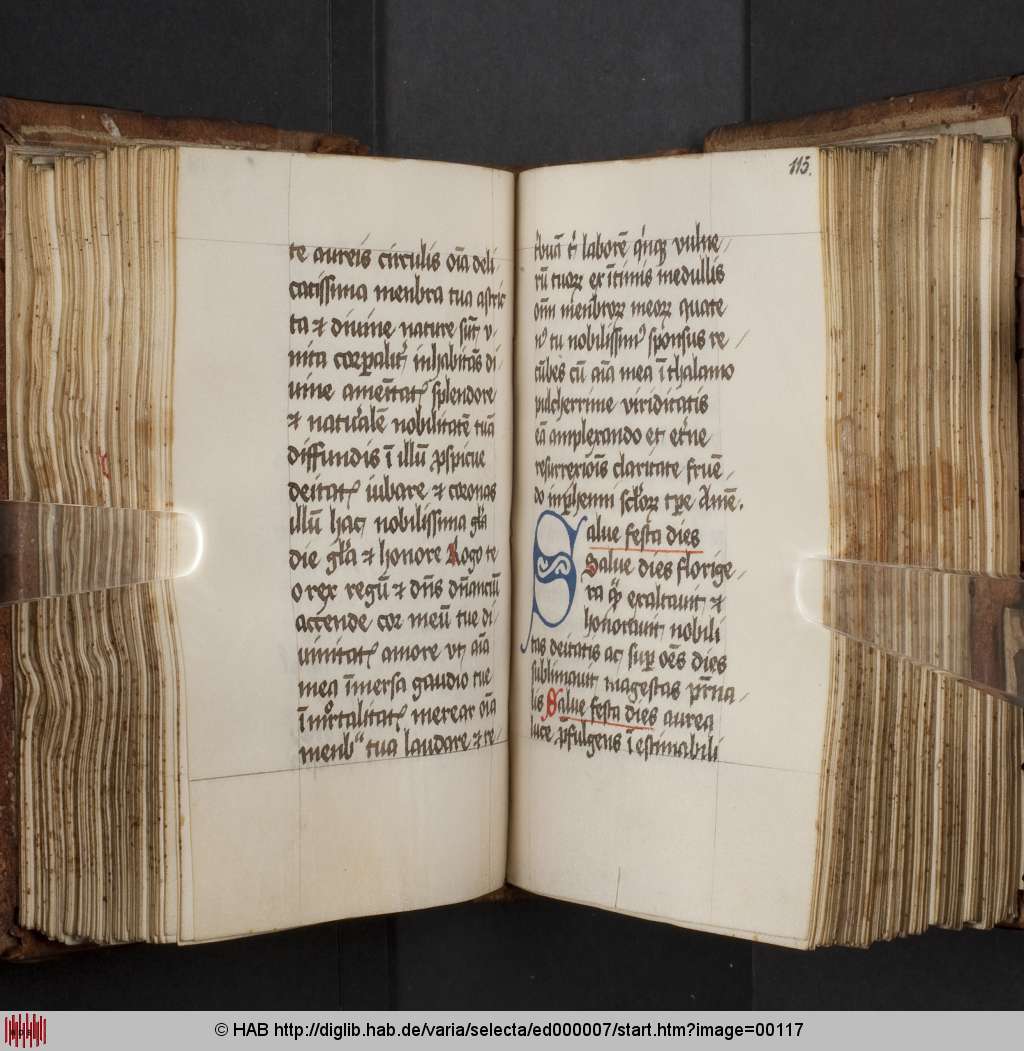 te aureis circulis oīa deli
catissima menbra tua astric
ta et diuine nature sūt v-
nita corꝑalitˀ inhabitās di
uine amenitatꝭ splendore
et natural̓em nobilitatē tuā
diffundis ī illū ꝓspicue
deitatꝭ iubare et coronas
illū hac nobilissima gl̓a
die gl̓a et honore Rogo te
o rex regū et dn̄s dn̄anciū
accende cor meū tue di
uinitatꝭ amore vt aīa
mea īmersa gaudio tue
īmortalitatꝭ merear oīa
menbᵃ tua laudare et re-
115.
laborē quīqꝫ vulne-
rū tuoꝝ ex ītimis medullis
oīm menbroꝝ meoꝝ quate
nꝰ tu nobilissimꝰ sponsus re-
cūbes cū aīa mea ī thalamo
pulcherrime viriditatis
eā amplexando et et̓ne
resurrexiōīs claritate fruē-
do inꝑhenni sclōꝝ tꝑe Amē.
Salue festa dies
Salue dies florige-
ra exaltauit et
honorauit nobili
tas deitatis ac suꝑ oēs dies
sublimauit magestas pr̄na-
lis Salue festa dies aurea
luce ꝑfulgens īestimabili
© HAB http://diglib.hab.de/varia/selecta/ed000007/start.htm?image=00117